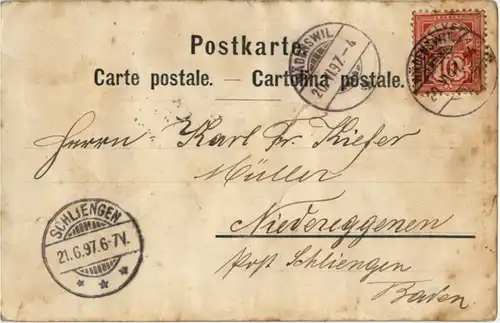 Postkarte.
Carte postale. — Cartolina postale.
WÄDENSWIL
20.VI.97.-4
10
Herrn Karl Fr. Kiefer
Müller
Niedereggenen
Post Schliengen
Baden
SCHLIENGEN
21.6.97.6-7V.